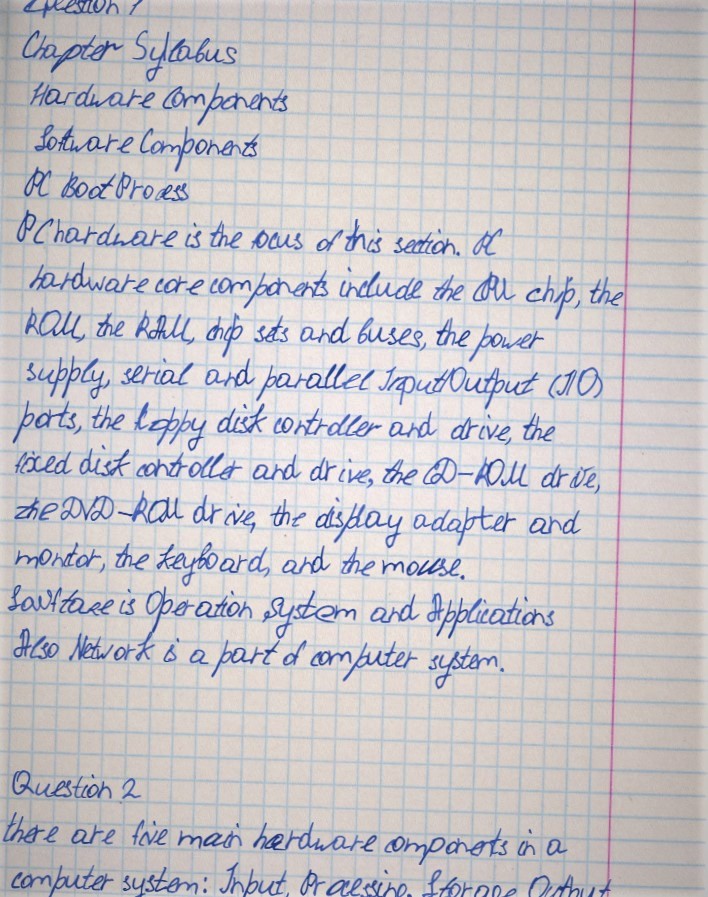 Question 1
Chapter Syllabus
Hardware Components
Software Components
PC Boot Process
PC hardware is the focus of this section. PC
hardware core components include the CPU chip, the
ROM, the RAM, chip sets and buses, the power
supply, serial and parallel Input/Output (I/O)
ports, the floppy disk controller and drive, the
fixed disk controller and drive, the CD-ROM drive,
the DVD-ROM drive, the display adapter and
monitor, the keyboard, and the mouse.
is Operation System and Applications
Also Network is a part of computer system.
Question 2
there are five main hardware components in a
computer system: Input, Processing, Storage, Output